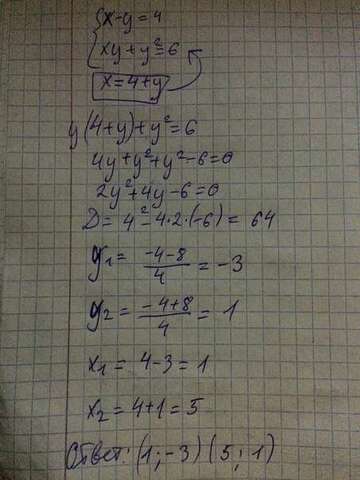 {x-y=4
{xy+y²=6
x=4+y
y(4+y)+y²=6
4y+y²+y²-6=0
2y²+4y-6=0
D=4²-4·2·(-6)=64
y₁=(-4-8)/4=-3
y₂=(-4+8)/4=1
x₁=4-3=1
x₂=4+1=5
Ответ: (1;-3)(5;1)